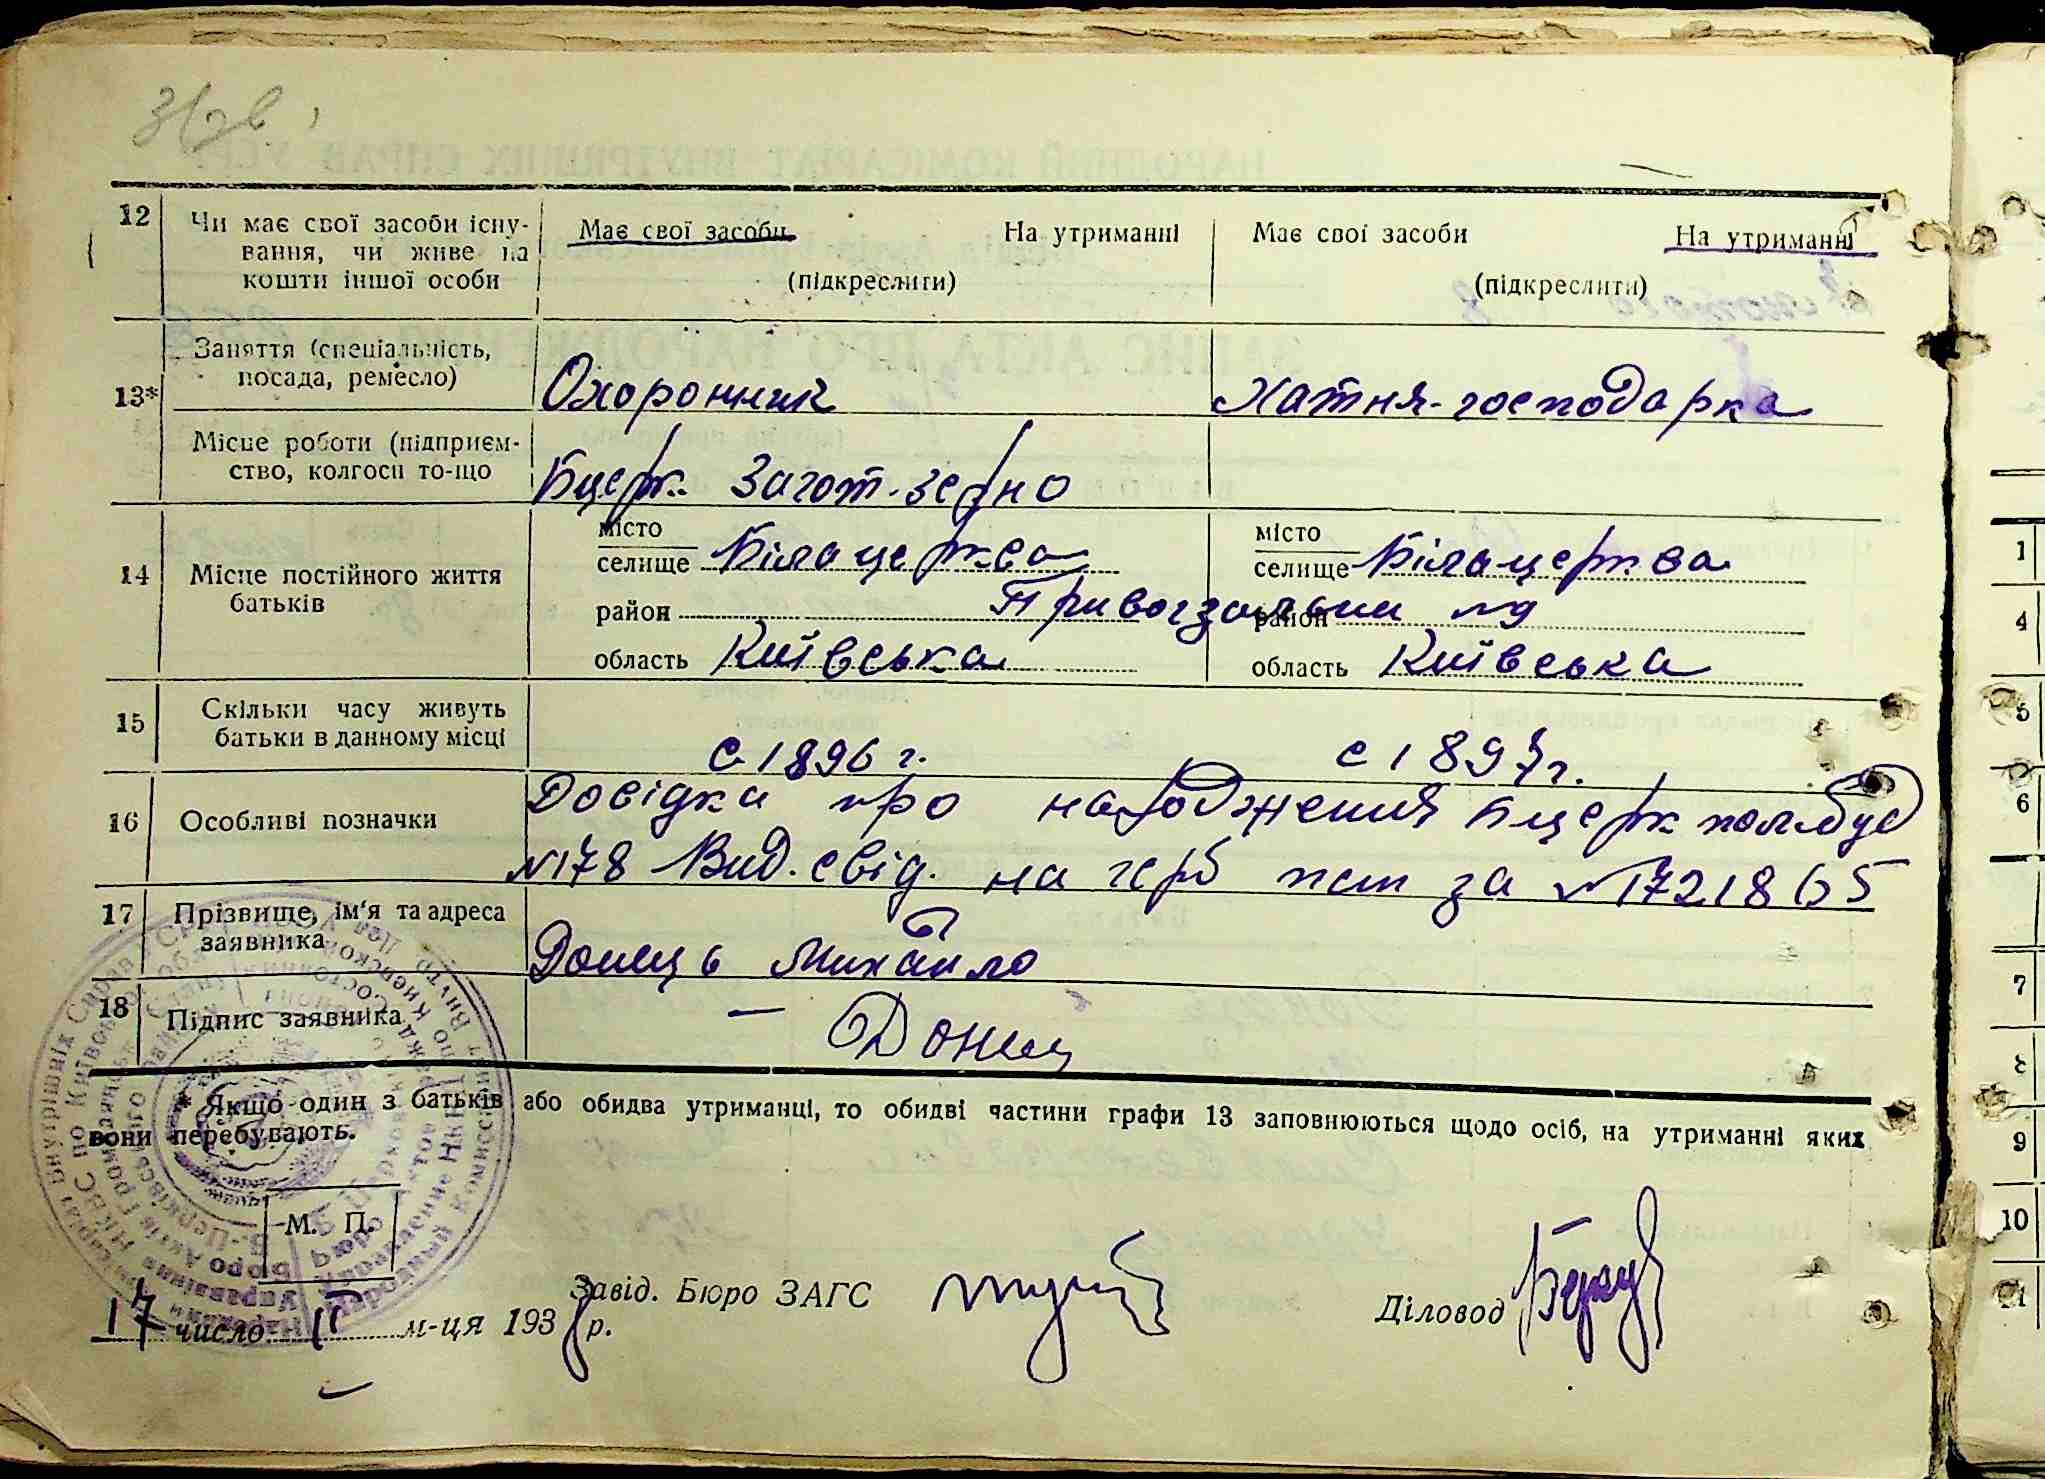 12 Чи має свої засоби існу-
вання, чи живе на
кошти іншої особи
Має свої засоби На утриманні
(підкреслити)
Має свої засоби На утриманні
(підкреслити)
13* Заняття (спеціальність,
посада, ремесло)
Охоронник
Хатня-господарка
Місце роботи (підприєм-
ство, колгосп то-що
Бцерк. Загот-зерно
14 Місце постійного життя
батьків
місто
селище Білацерква
район Привогзальни
область Київська
місто
селище Білацерква
район
область Київська
15 Скільки часу живуть
батьки в данному місці
с 1896 г.
с 1897 г.
16 Особливі позначки
Довідка про народження Бцерк
№178 Вид. свід. на герб пап за №1721865
17 Прізвище, ім'я та адреса
заявника
Донець Михайло
18 Підпис заявника
— Донец
* Якщо один з батьків або обидва утриманці, то обидві частини графи 13 заповнюються щодо осіб, на утриманні яких
вони перебувають.
М. П.
17 число II м-ця 1938 р.
Завід. Бюро ЗАГС
Діловод
1
4
5
6
7
8
9
10
11